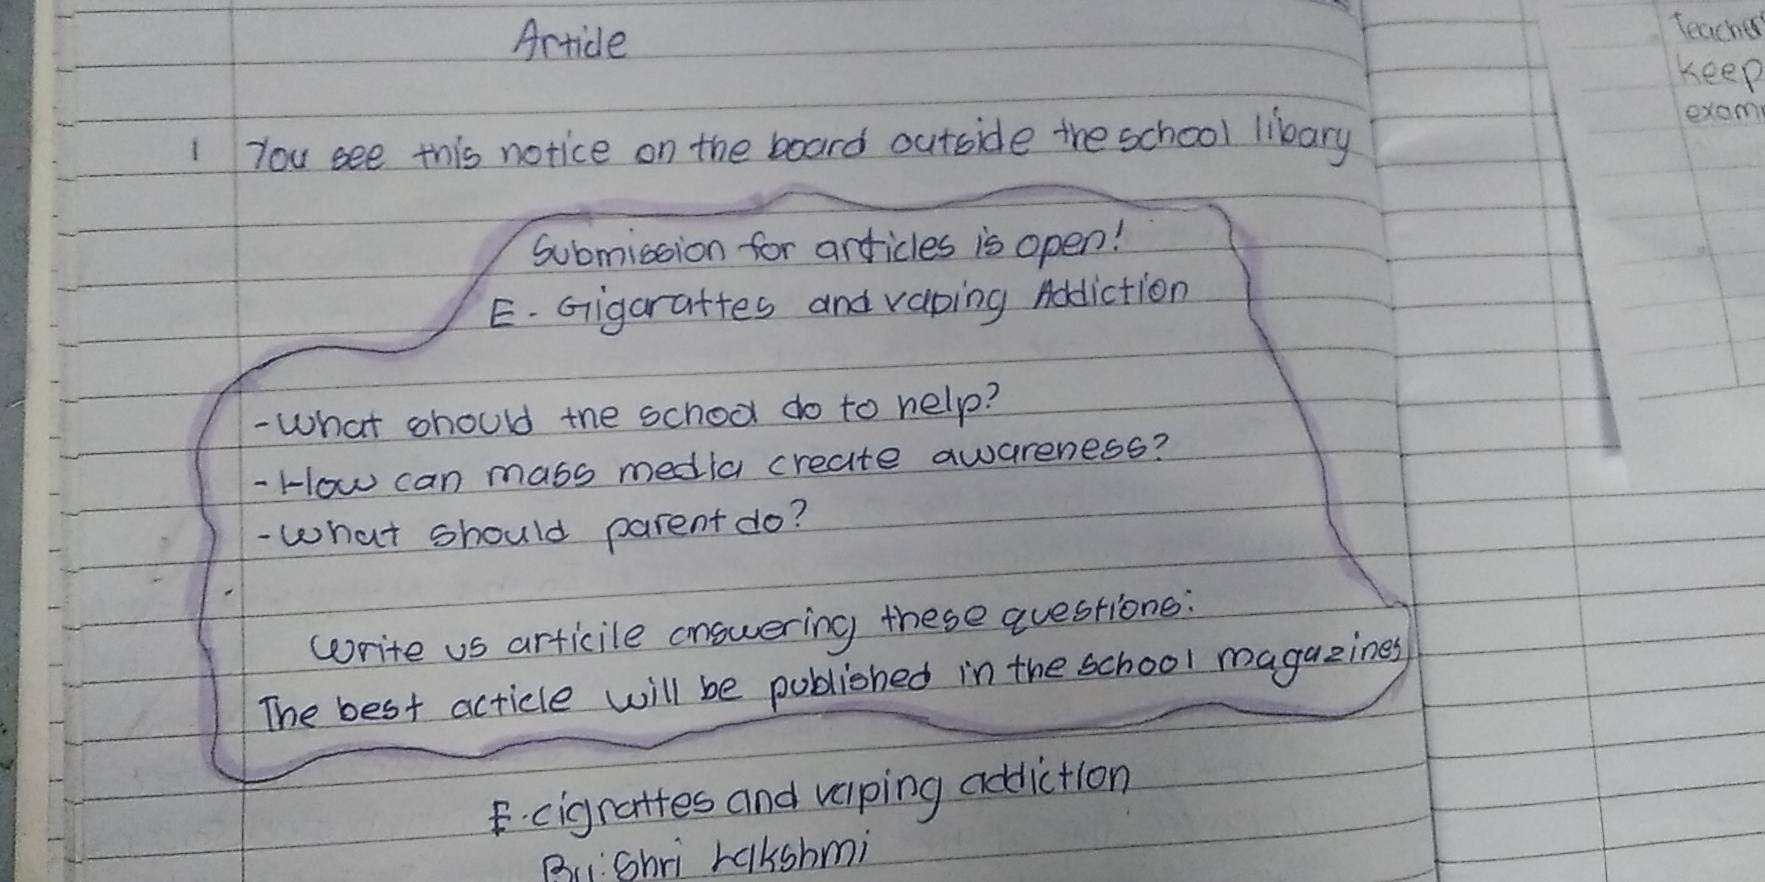 Article
1 You see this notice on the board outside the school libary
Submission for articles is open!
E. Gigarattes and vaping Addiction
- What should the school do to help?
- How can mass media create awareness?
- What should parent do?
Write us articile answering these questions:
The best acticle will be published in the school magazines
E. cigrattes and vaping addiction
By: Shri Lakshmi
Teacher
keep
exam